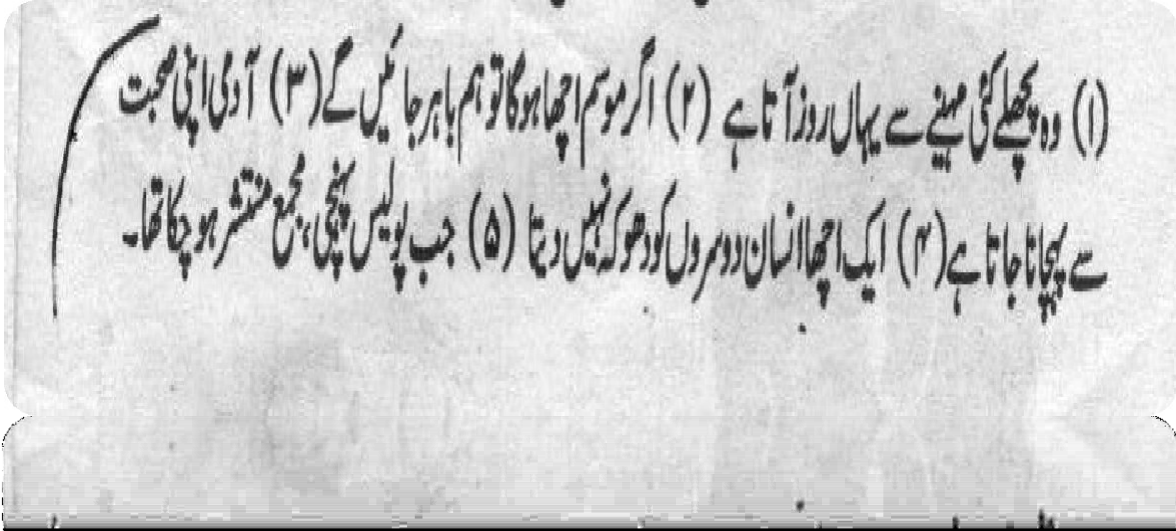 (۱) وہ پچھلے کئی مہینے سے یہاں روز آتا ہے (۲) اگر موسم اچھا ہوگا تو ہم باہر جائیں گے (۳) آدمی اپنی صحبت
سے پہچانا جاتا ہے (۴) ایک اچھا انسان دوسروں کو دھوکہ نہیں دیتا (۵) جب پولیس پہنچی، مجمع منتشر ہو چکا تھا۔